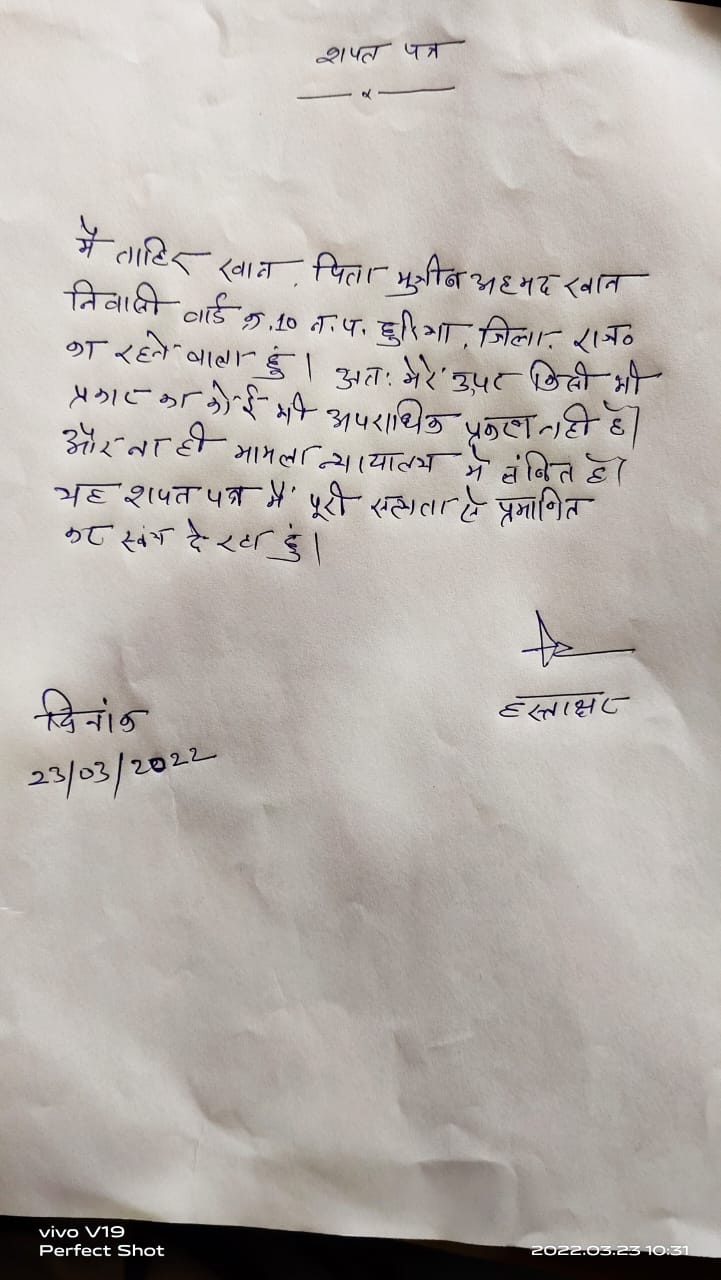 शपत पत्र
मैं ताहिर खान, पिता मुबीन अहमद खान
निवासी वार्ड क्र.10 न.प. छुरिया, जिला. राज०
का रहने वाला हुं। अतः मेरे उपर किसी भी
प्रकार का कोई भी अपराधिक प्रकरण नही है।
और ना ही मामला न्यायालय में लंबित है।
यह शपत पत्र मैं पूरी सत्यता से प्रमाणित
कर स्वंय दे रहा हुं।
हस्ताक्षर
दिनांक
23/03/2022
vivo V19
Perfect Shot
2022.03.23 10:31